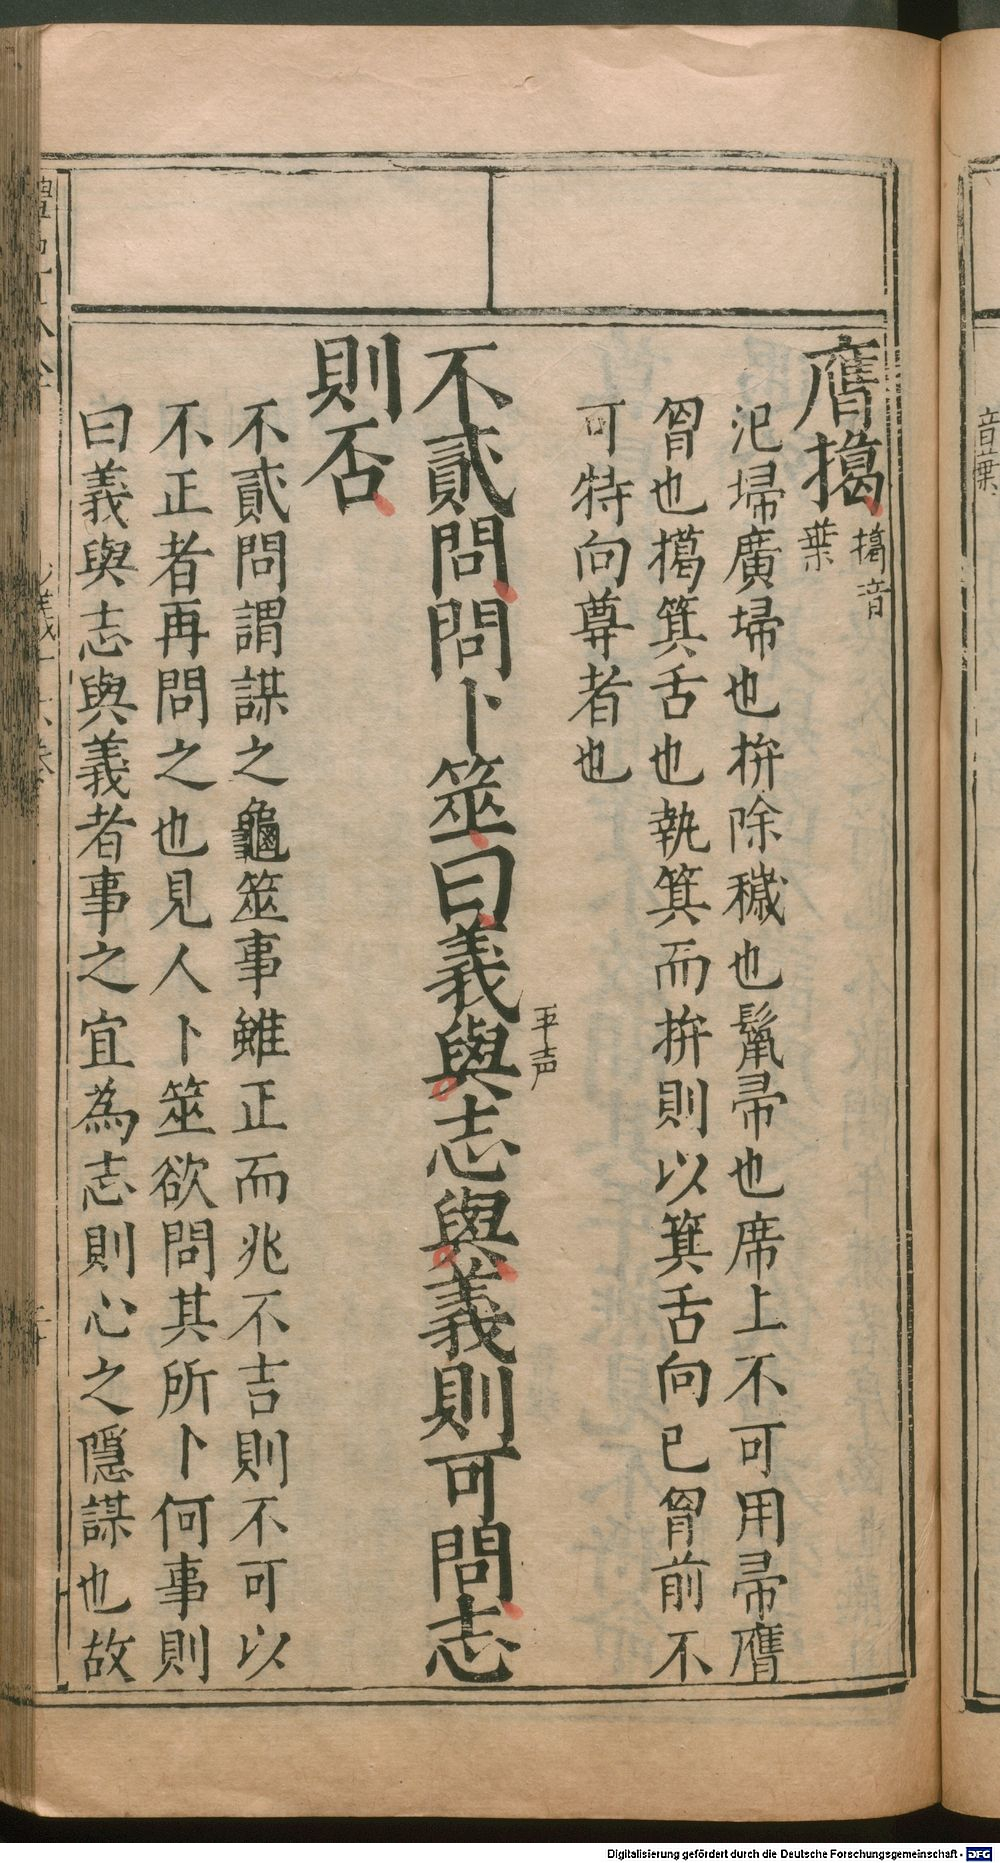 膺擖擖音葉
氾埽廣埽也拚除穢也鬛帚也席上不可用帚膺
胷也擖箕舌也執箕而拚則以箕舌向已胷前不
可持向尊者也
不貳問問卜筮曰義與平声志與義則可問志
則否
不貳問謂謀之龜筮事雖正而兆不吉則不可以
不正者再問之也見人卜筮欲問其所卜何事則
曰義與志與義者事之宜為志則心之隱謀也故
音葉
Digitalisierung gefördert durch die Deutsche Forschungsgemeinschaft - DFG